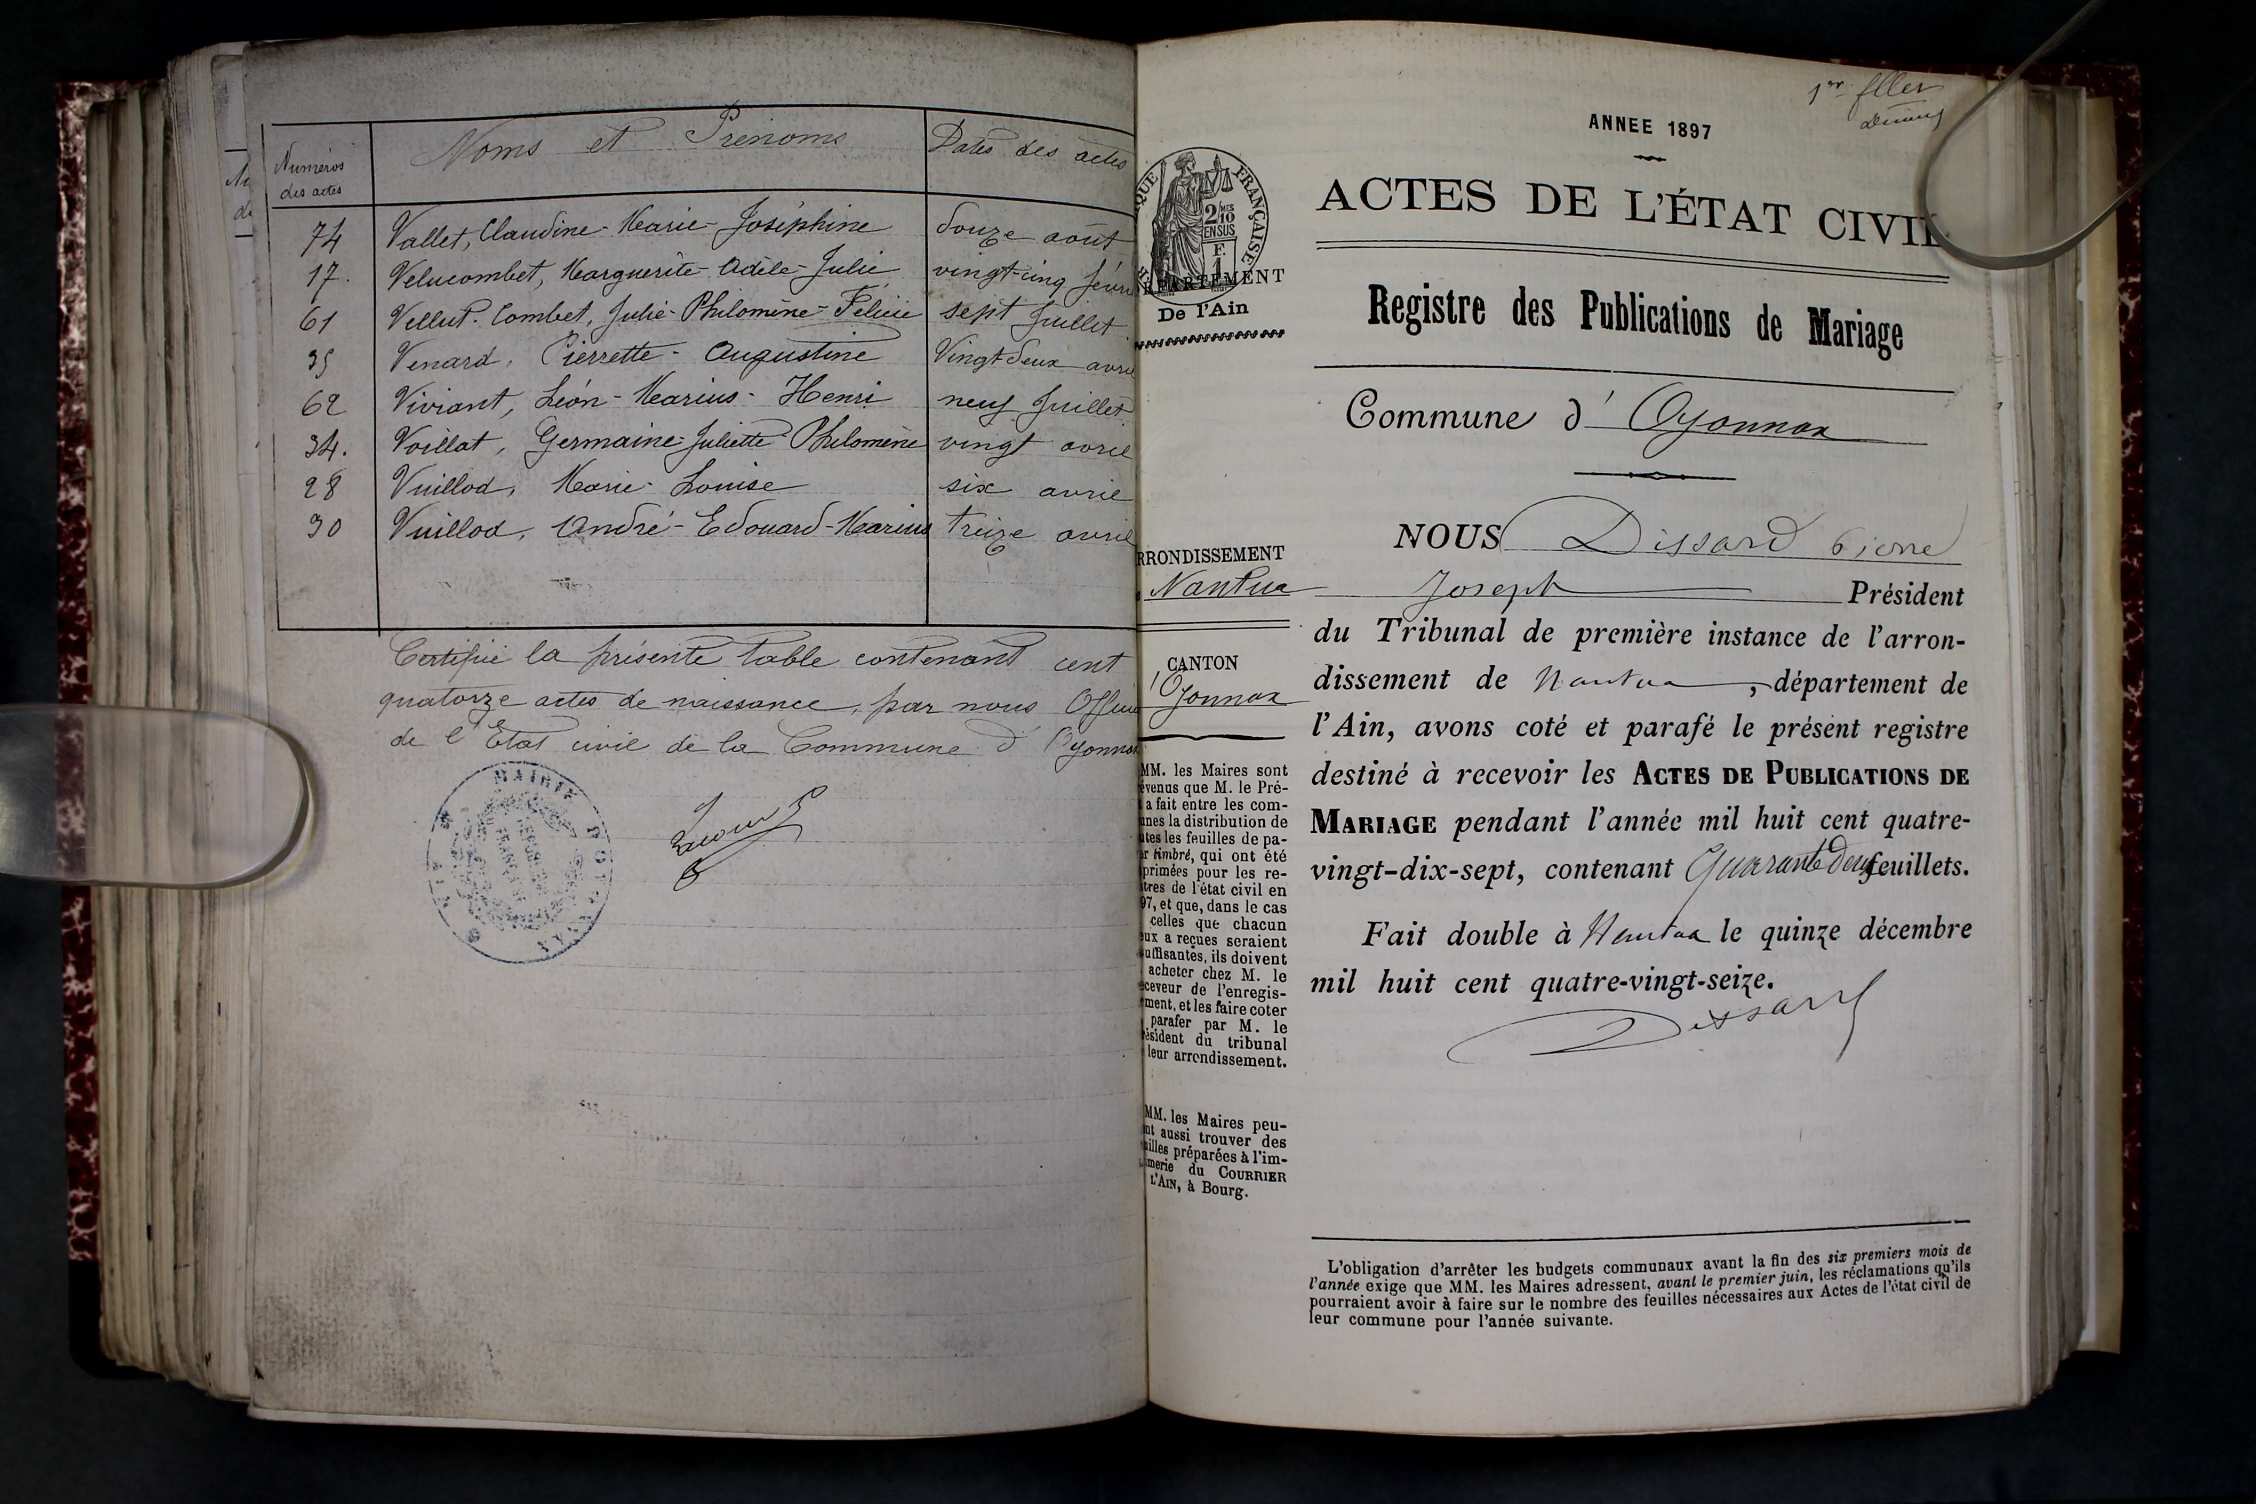 Numéros des actes
Noms et Prénoms
Dates des actes
74 Vallet, Claudine-Marie-Joséphine douze août
17. Velucombet, Marguerite-Adèle-Julie vingt-cinq févri
61 Vellut-Combet, Julie-Philomène-Félicie sept Juillet
35 Venard, Pierrette-Augustine Vingt deux avril
62 Viviant, Léon-Marius-Henri neuf Juillet
34. Voillat, Germaine-Juliette-Philomène vingt avril
28 Vuillod, Marie-Louise six avril
30 Vuillod, André-Edouard-Marius treize avril
Certifié la présente table contenant cent
quatorze actes de naissance, par nous Officier
de l'Etat civil de la Commune d'Oyonnax
MAIRIE D'OYONNAX
AIN
1er
ANNEE 1897
ACTES DE L'ÉTAT CIVIL
Registre des Publications de Mariage
Commune d' Oyonnax
NOUS Dissard Pierre
Joseph Président
du Tribunal de première instance de l'arron-
dissement de Nantua, département de
l'Ain, avons coté et parafé le présent registre
destiné à recevoir les ACTES DE PUBLICATIONS DE
MARIAGE pendant l'année mil huit cent quatre-
vingt-dix-sept, contenant Quarante deux feuillets.
Fait double à Nantua le quinze décembre
mil huit cent quatre-vingt-seize.
Dissard
QUE FRANÇAISE
2/10MES
EN SUS
1 F.
PARTEMENT
De l'Ain
RRONDISSEMENT
Nantua
CANTON
d'Oyonnax
MM. les Maires sont
évenus que M. le Pré-
a fait entre les com-
nes la distribution de
tes les feuilles de pa-
r timbré, qui ont été
primées pour les re-
tres de l'état civil en
97, et que, dans le cas
celles que chacun
eux a reçues seraient
uffisantes, ils doivent
acheter chez M. le
ceveur de l'enregis-
ment, et les faire coter
parafer par M. le
ésident du tribunal
leur arrondissement.
MM. les Maires peu-
nt aussi trouver des
illes préparées à l'im-
merie du COURRIER
L'AIN, à Bourg.
L'obligation d'arrêter les budgets communaux avant la fin des six premiers mois de
l'année exige que MM. les Maires adressent, avant le premier juin, les réclamations qu'ils
pourraient avoir à faire sur le nombre des feuilles nécessaires aux Actes de l'état civil de
leur commune pour l'année suivante.